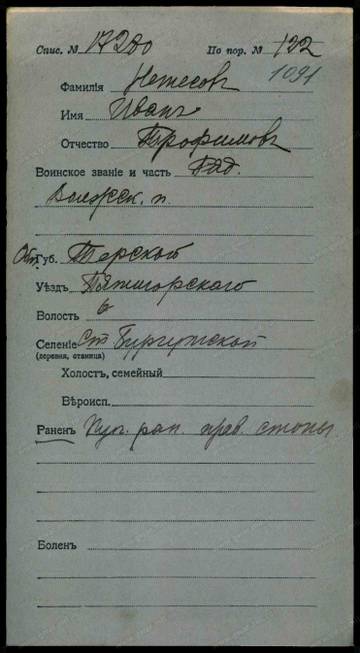 Спис. № 17200 По пор. № 122
1091
Фамилія Нетесовъ
Имя Иванъ
Отчество Трофимовъ
Воинское званіе и часть Ряд.
Волжск. п.
Обл. Губ. Терской
Уѣздъ Пятигорскаго
Волость
Селеніе Ст. Бургустской
(деревня, станица)
Холостъ, семейный
Вѣроисп.
Раненъ Пул. ран. прав. стопы
Боленъ